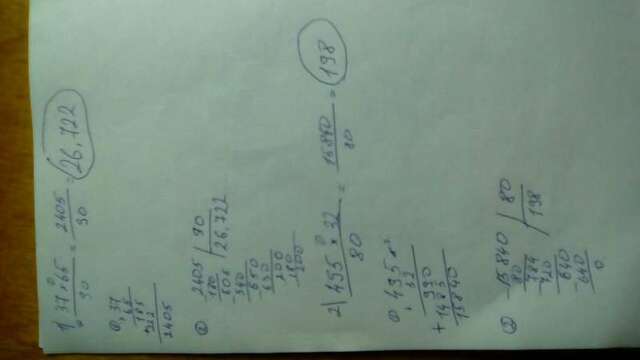 1) 37 × 65 / 90 = 2405 / 90 = 26,722
① 37
65
185
222
2405
② 2405 | 90
180 | 26,722
605
540
650
630
200
180
200
2) 495 × 32 / 80 = 15840 / 80 = 198
① 495 ×
32
990
+ 1485
15840
② - 15840 | 80
80 | 198
784
- 720
640
- 640
0